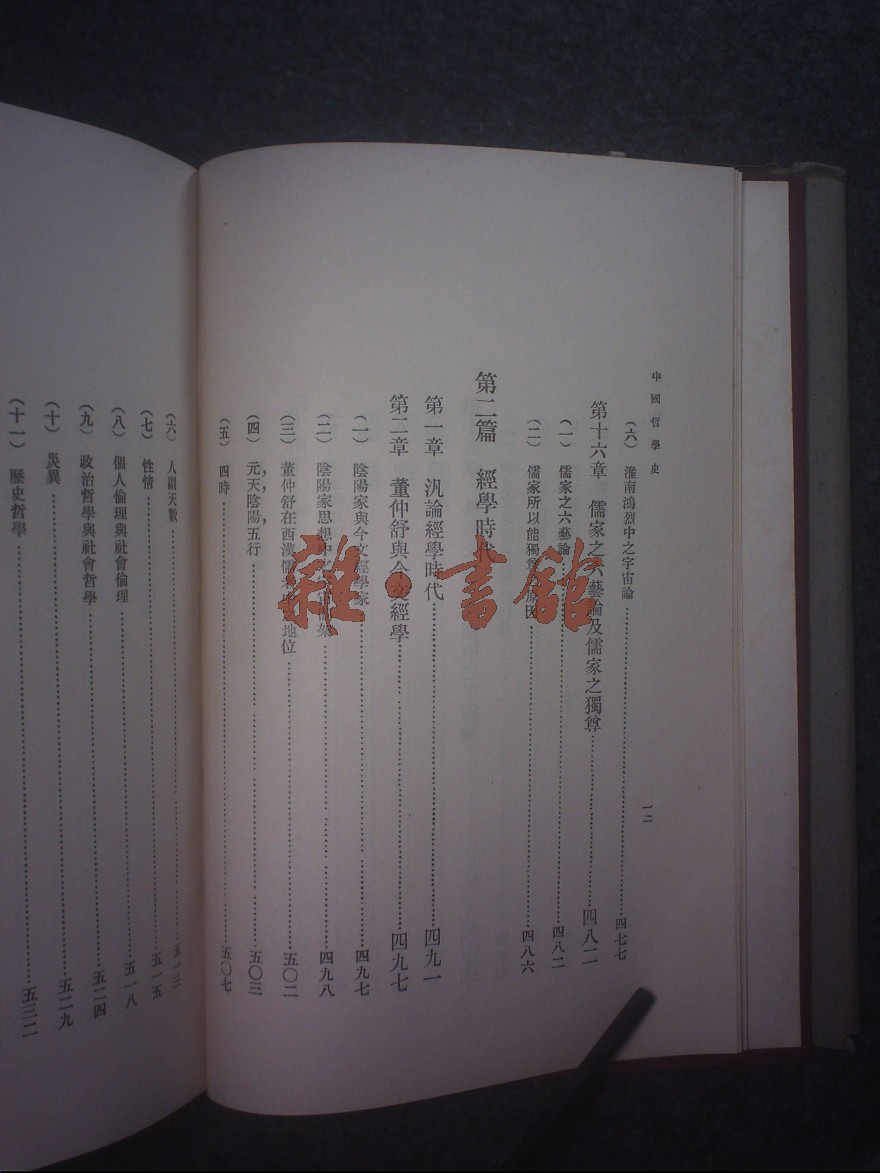 中國哲學史
一二
（六）淮南鴻烈中之宇宙論……四七七
第十六章　儒家之六藝論及儒家之獨尊……四八二
（一）儒家之六藝論……四八二
（二）儒家所以能獨尊　原因……四八六
第二篇　經學時代
第一章　汎論經學時代……四九一
第二章　董仲舒與今文經學……四九七
（一）陰陽家與今文經學家……四九七
（二）陰陽家思想中　宙間架……四九八
（三）董仲舒在西漢儒者中　地位……五〇二
（四）元，天，陰陽，五行……五〇三
（五）四時……五〇七
（六）人副天數……五一三
（七）性情……五一五
（八）個人倫理與社會倫理……五一八
（九）政治哲學與社會哲學……五二四
（十）災異……五二九
（十一）歷史哲學……五三二
雜·書館